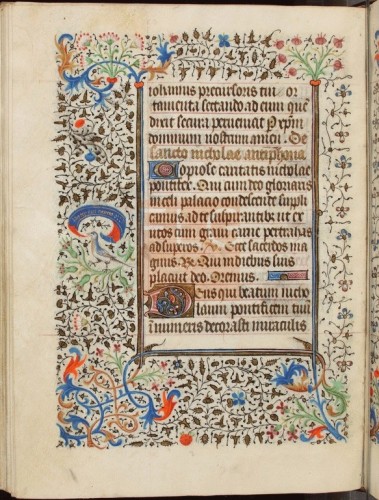 iohannis precursoris tui or
tamenta sectando ad eum quē
dirit secura perueniat P xpm̄
dominum nostrum amen. De
sancto nicholao antiphona
O copiose caritatis nicholae
pontifex. Qui cum deo gloriaris
in celi palacio condescende suppli
camus ad te suspirantibus ut ex
utos cum graui carne pertrahas
ad superos. Ecce sacerdos ma
gnus. R. Qui in diebus suis
placuit deo. Oremus.
Deus qui beatum nicho
laum pontificem tuū
innumeris decorasti miraculis